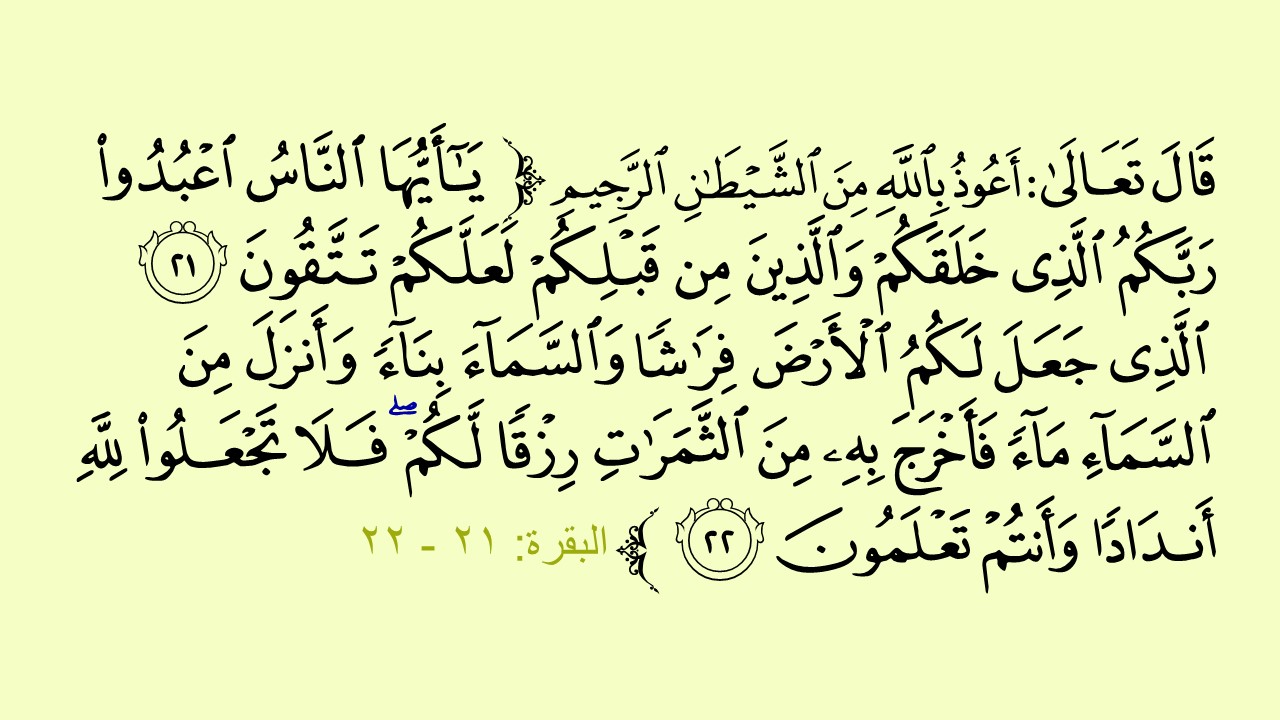 قَالَ تَعَالَىٰ: أَعُوذُ بِٱللَّهِ مِنَ ٱلشَّيْطَٰنِ ٱلرَّجِيمِ ﴿ يَـٰٓأَيُّهَا ٱلنَّاسُ ٱعْبُدُوا۟
رَبَّكُمُ ٱلَّذِى خَلَقَكُمْ وَٱلَّذِينَ مِن قَبْلِكُمْ لَعَلَّكُمْ تَتَّقُونَ ٢١
ٱلَّذِى جَعَلَ لَكُمُ ٱلْأَرْضَ فِرَٰشًا وَٱلسَّمَآءَ بِنَآءً وَأَنزَلَ مِنَ
ٱلسَّمَآءِ مَآءً فَأَخْرَجَ بِهِۦ مِنَ ٱلثَّمَرَٰتِ رِزْقًا لَّكُمْ ۖ فَلَا تَجْعَلُوا۟ لِلَّهِ
أَندَادًا وَأَنتُمْ تَعْلَمُونَ ٢٢ ﴾ البقرة: ٢١ - ٢٢